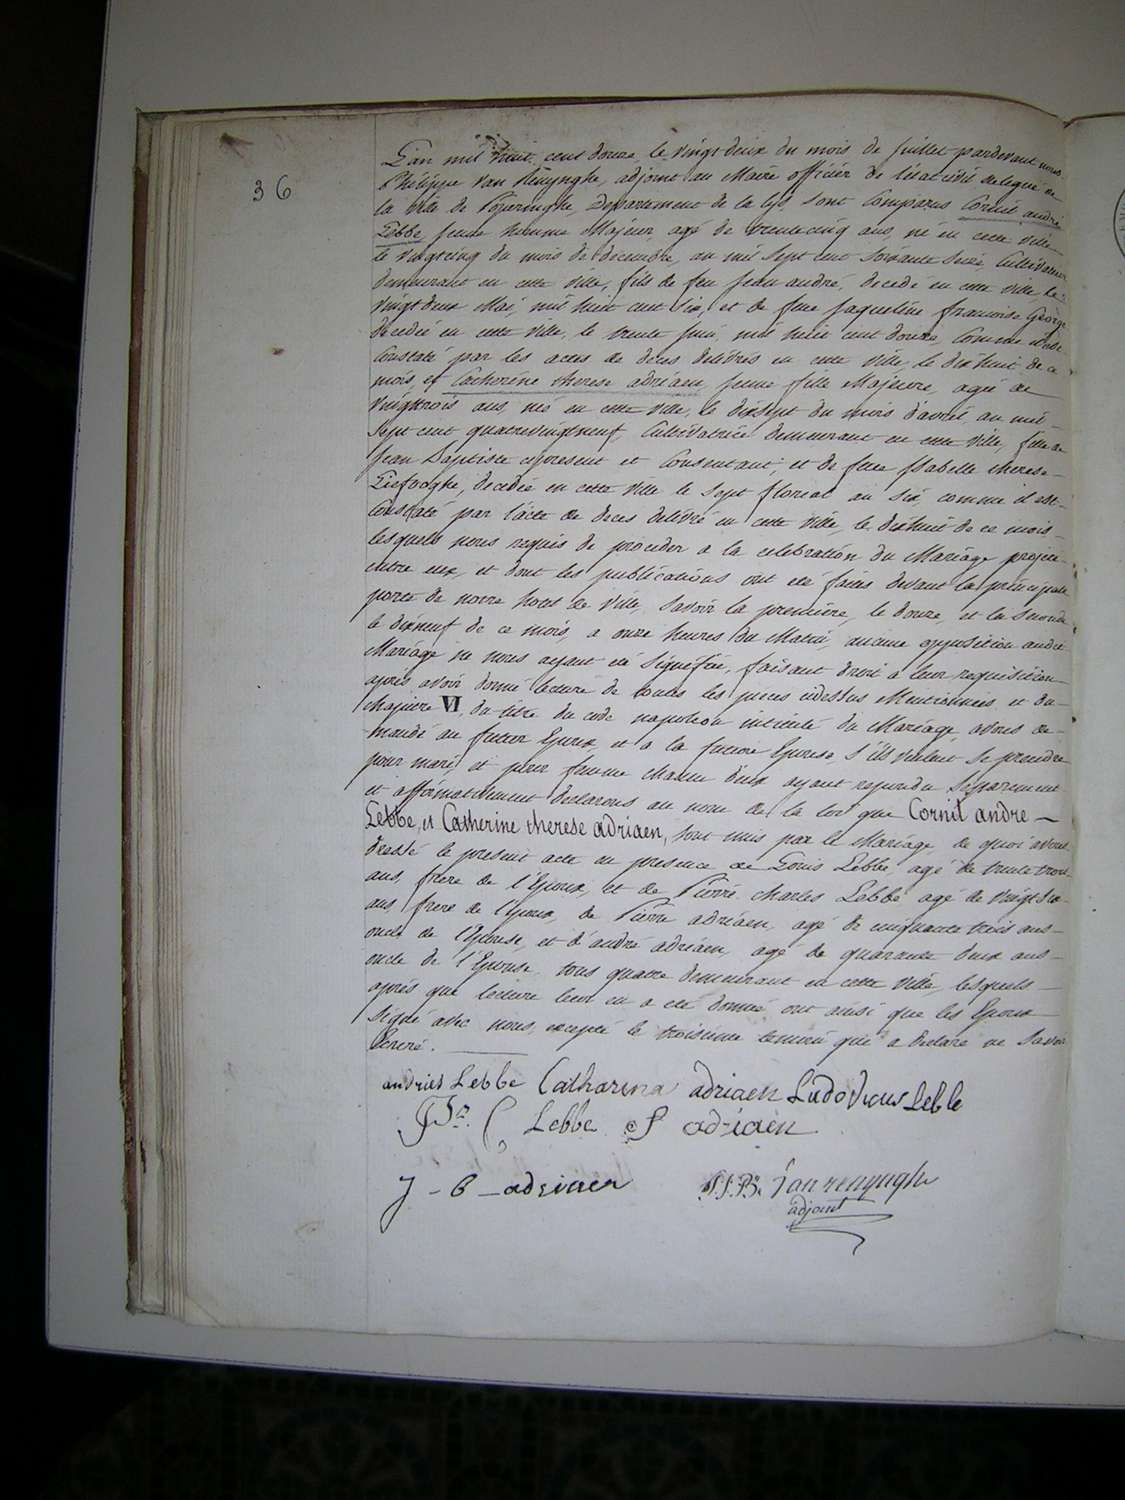 36
L'an mil huit cent douze, le vingt deux du mois de Juillet pardevant nous
Philippe Van Renynghe, adjoint au Maire officier de l'état civil delegué de
la ville de Poperinghe, Departement de la Lys, sont Comparus Cornil andré
Lebbe, jeune homme Majeur, agé de trentecinq ans, né en cette ville
le vingtcinq du mois de decembre, an mil sept cent soixante seize Cultivateur
demeurant en cette ville, fils de feu jean andré, decedé en cette ville, le
vingtdeux Mai, mil huit cent six, et de feue jaqueline francoise George
decedée en cette ville, le trente juin, mil huit cent douze, comme il est
Constaté par les actes de deces delivrés en cette ville, le dixhuit de ce
mois, et Catherine therese adriaen, jeune fille Majeure, agée de
vingttrois ans, née en cette ville, le dixsept du mois d'avril an mil
sept cent quatrevingtneuf, Cultivatrice demeurant en cette ville, fille de
jean Baptiste cipresent et Consentant, et de feue Isabelle therese
decedée en cette ville le sept floreal an six, comme il est
Constaté par l'acte de deces delivré en cette ville, le dixhuit de ce mois
lesquels nous requis de proceder a la celebration du Mariage projeté
entre eux, et dont les publications ont été faites devant la principale
porte de notre hotel de ville, savoir la premiere, le douze, et la seconde
le dixneuf de ce mois, a onze heures du Matin, aucune opposition audit
Mariage ne nous ayant été signifiée, faisant droit a leur requisition
apres avoir donné lecture de toutes les pieces cidessus Mentionnées et du
chapitre VI, du titre du code napoleon intitulé du Mariage, avons de-
mandé au futur Epoux, et a la future Epouse, s'ils veulent se prendre
pour mari, et pour femme chacun d'eux ayant repondu separement
et affirmativement declarons au nom de la loi que Cornil andre
Lebbe, et Catherine therese adriaen, sont unis par le Mariage, de quoi avons
dressé le present acte en presence de Louis Lebbe, agé de trente trois
ans, frere de l'Epoux, et de Pierre Charles Lebbe agé de vingt six
ans, frere de l'Epoux, de Pierre adriaen, agé de cinquante trois ans
oncle de l'Epouse, et d'andré adriaen, agé de quarante deux ans
oncle de l'Epouse, tous quatre demeurant en cette ville, lesquels
après que lecture leur en a été donnée ont ainsi que les Epoux
signé avec nous, excepté le troisieme temoin qui a declaré ne savoir
écrire.
andries Lebbe Catharina adriaen Ludovicus Lebbe
C Lebbe adriaen
J - B - adriaen Van renynghe
adjoint